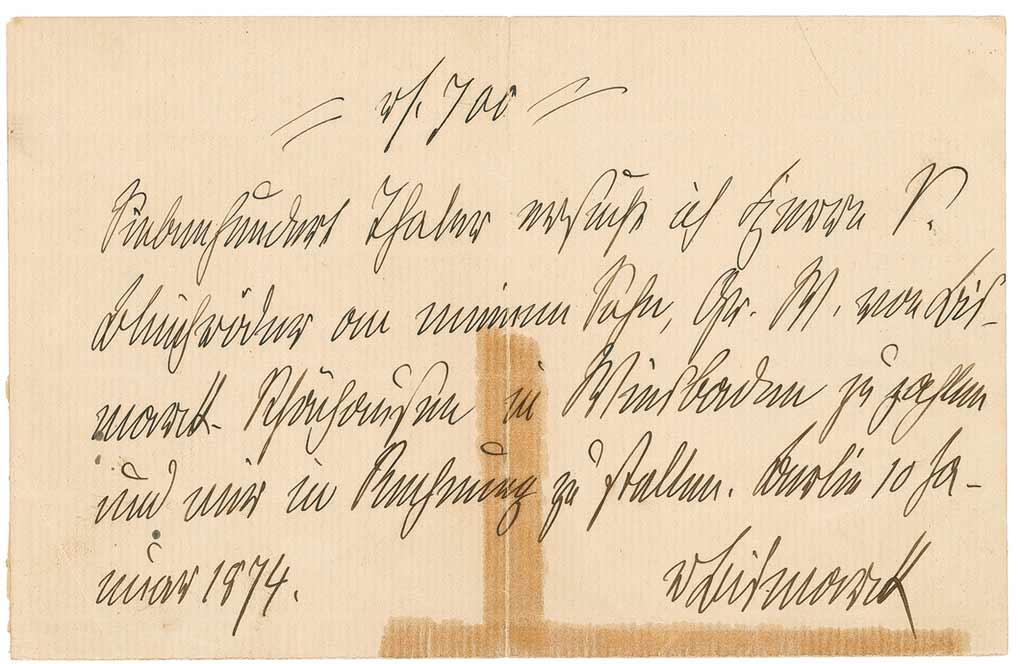 = rh. 700 =
Siebenhundert Thaler ersuche ich Herrn S.
Bleichröder an meinen Sohn, Gr. W. von Bis-
marck-Schönhausen in Wiesbaden zu zahlen
und mir in Rechnung zu stellen. Berlin 10 Ja-
nuar 1874.
vBismarck